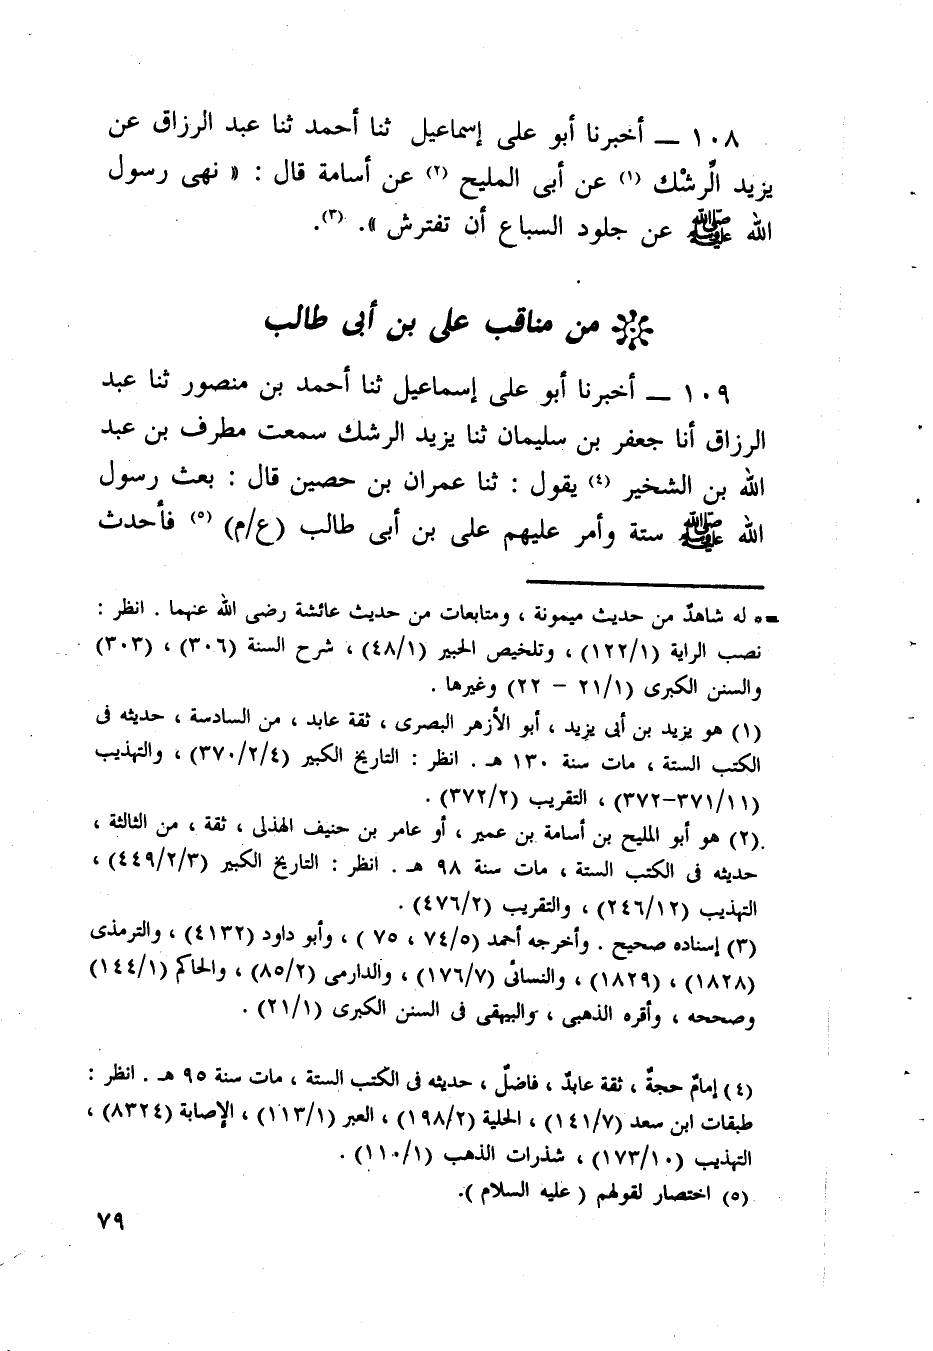 ١٠٨ — أخبرنا أبو على إسماعيل ثنا أحمد ثنا عبد الرزاق عن
يزيد الرِّشْك (١) عن أبى المليح (٢) عن أسامة قال : « نهى رسول
الله ﷺ عن جلود السباع أن تفترش ». (٣).
من مناقب على بن أبى طالب
١٠٩ — أخبرنا أبو على إسماعيل ثنا أحمد بن منصور ثنا عبد
الرزاق أنا جعفر بن سليمان ثنا يزيد الرشك سمعت مطرف بن عبد
الله بن الشخير (٤) يقول : ثنا عمران بن حصين قال : بعث رسول
الله ﷺ ستة وأمر عليهم على بن أبى طالب (ع/م) (٥) فأحدث
له شاهدٌ من حديث ميمونة ، ومتابعات من حديث عائشة رضى الله عنهما . انظر :
نصب الراية (١٢٢/١) ، وتلخيص الحبير (٤٨/١) ، شرح السنة (٣٠٦) ، (٣٠٣)
والسنن الكبرى (٢١/١ — ٢٢) وغيرها .
(١) هو يزيد بن أبى يزيد ، أبو الأزهر البصرى ، ثقة عابد ، من السادسة ، حديثه فى
الكتب الستة ، مات سنة ١٣٠ هـ . انظر : التاريخ الكبير (٣٧٠/٢/٤) ، والتهذيب
(٣٧١/١١–٣٧٢) ، التقريب (٣٧٢/٢) .
(٢) هو أبو المليح بن أسامة بن عمير ، أو عامر بن حنيف الهذلى ، ثقة ، من الثالثة ،
حديثه فى الكتب الستة ، مات سنة ٩٨ هـ . انظر : التاريخ الكبير (٤٤٩/٢/٣) ،
التهذيب (٢٤٦/١٢) ، والتقريب (٤٧٦/٢) .
(٣) إسناده صحيح . وأخرجه أحمد (٧٤/٥ ، ٧٥ ) ، وأبو داود (٤١٣٢) ، والترمذى
(١٨٢٨) ، (١٨٢٩) ، والنسائى (١٧٦/٧) ، والدارمى (٨٥/٢) ، والحاكم (١٤٤/١)
وصححه ، وأقره الذهبى ، والبيهقى فى السنن الكبرى (٢١/١) .
(٤) إمامٌ حجةٌ ، ثقة عابدٌ ، فاضلٌ ، حديثه فى الكتب الستة ، مات سنة ٩٥ هـ . انظر :
طبقات ابن سعد (١٤١/٧) ، الحلية (١٩٨/٢) ، العبر (١١٣/١) ، الإصابة (٨٣٢٤) ،
التهذيب (١٧٣/١٠) ، شذرات الذهب (١١٠/١) .
(٥) اختصار لقولهم ( عليه السلام ).
٧٩